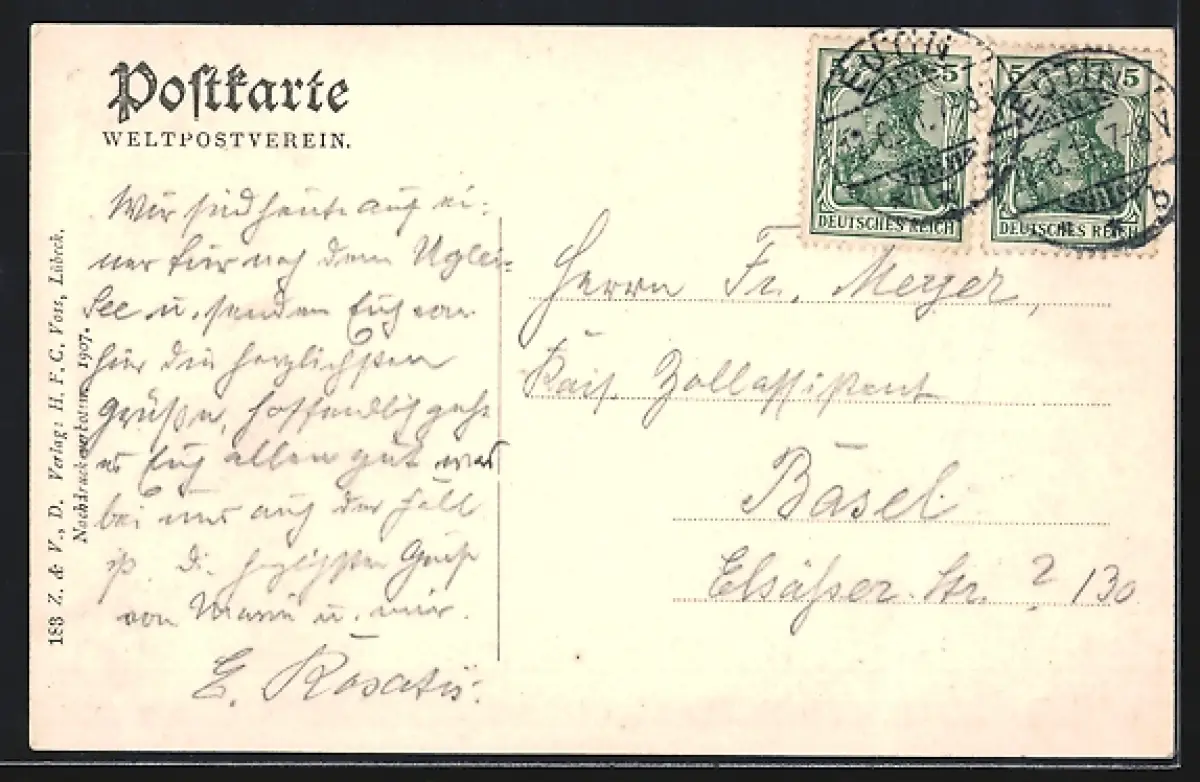 Postkarte
WELTPOSTVEREIN.
Wir sind heute auf ei-
ner Tur nach dem Uglei-
See u. senden Euch von
hier die herzlichsten
Grüße, hoffendlich geht
es Euch allen gut was
bei uns auch der Fall
ist. Die herzlichsten Grüße
von Marie u. mir.
E.
183 Z. & V., D. Verlag: H. F. C. Voss, Lübeck.
Nachdruck verboten. 1907.
EUTIN
5 5
DEUTSCHES REICH
EUTIN
5 5
7-8V
DEUTSCHES REICH
Herrn Fr. Meyer,
Kais. Zollassistent
Basel
Elsässer-Str. ? 130